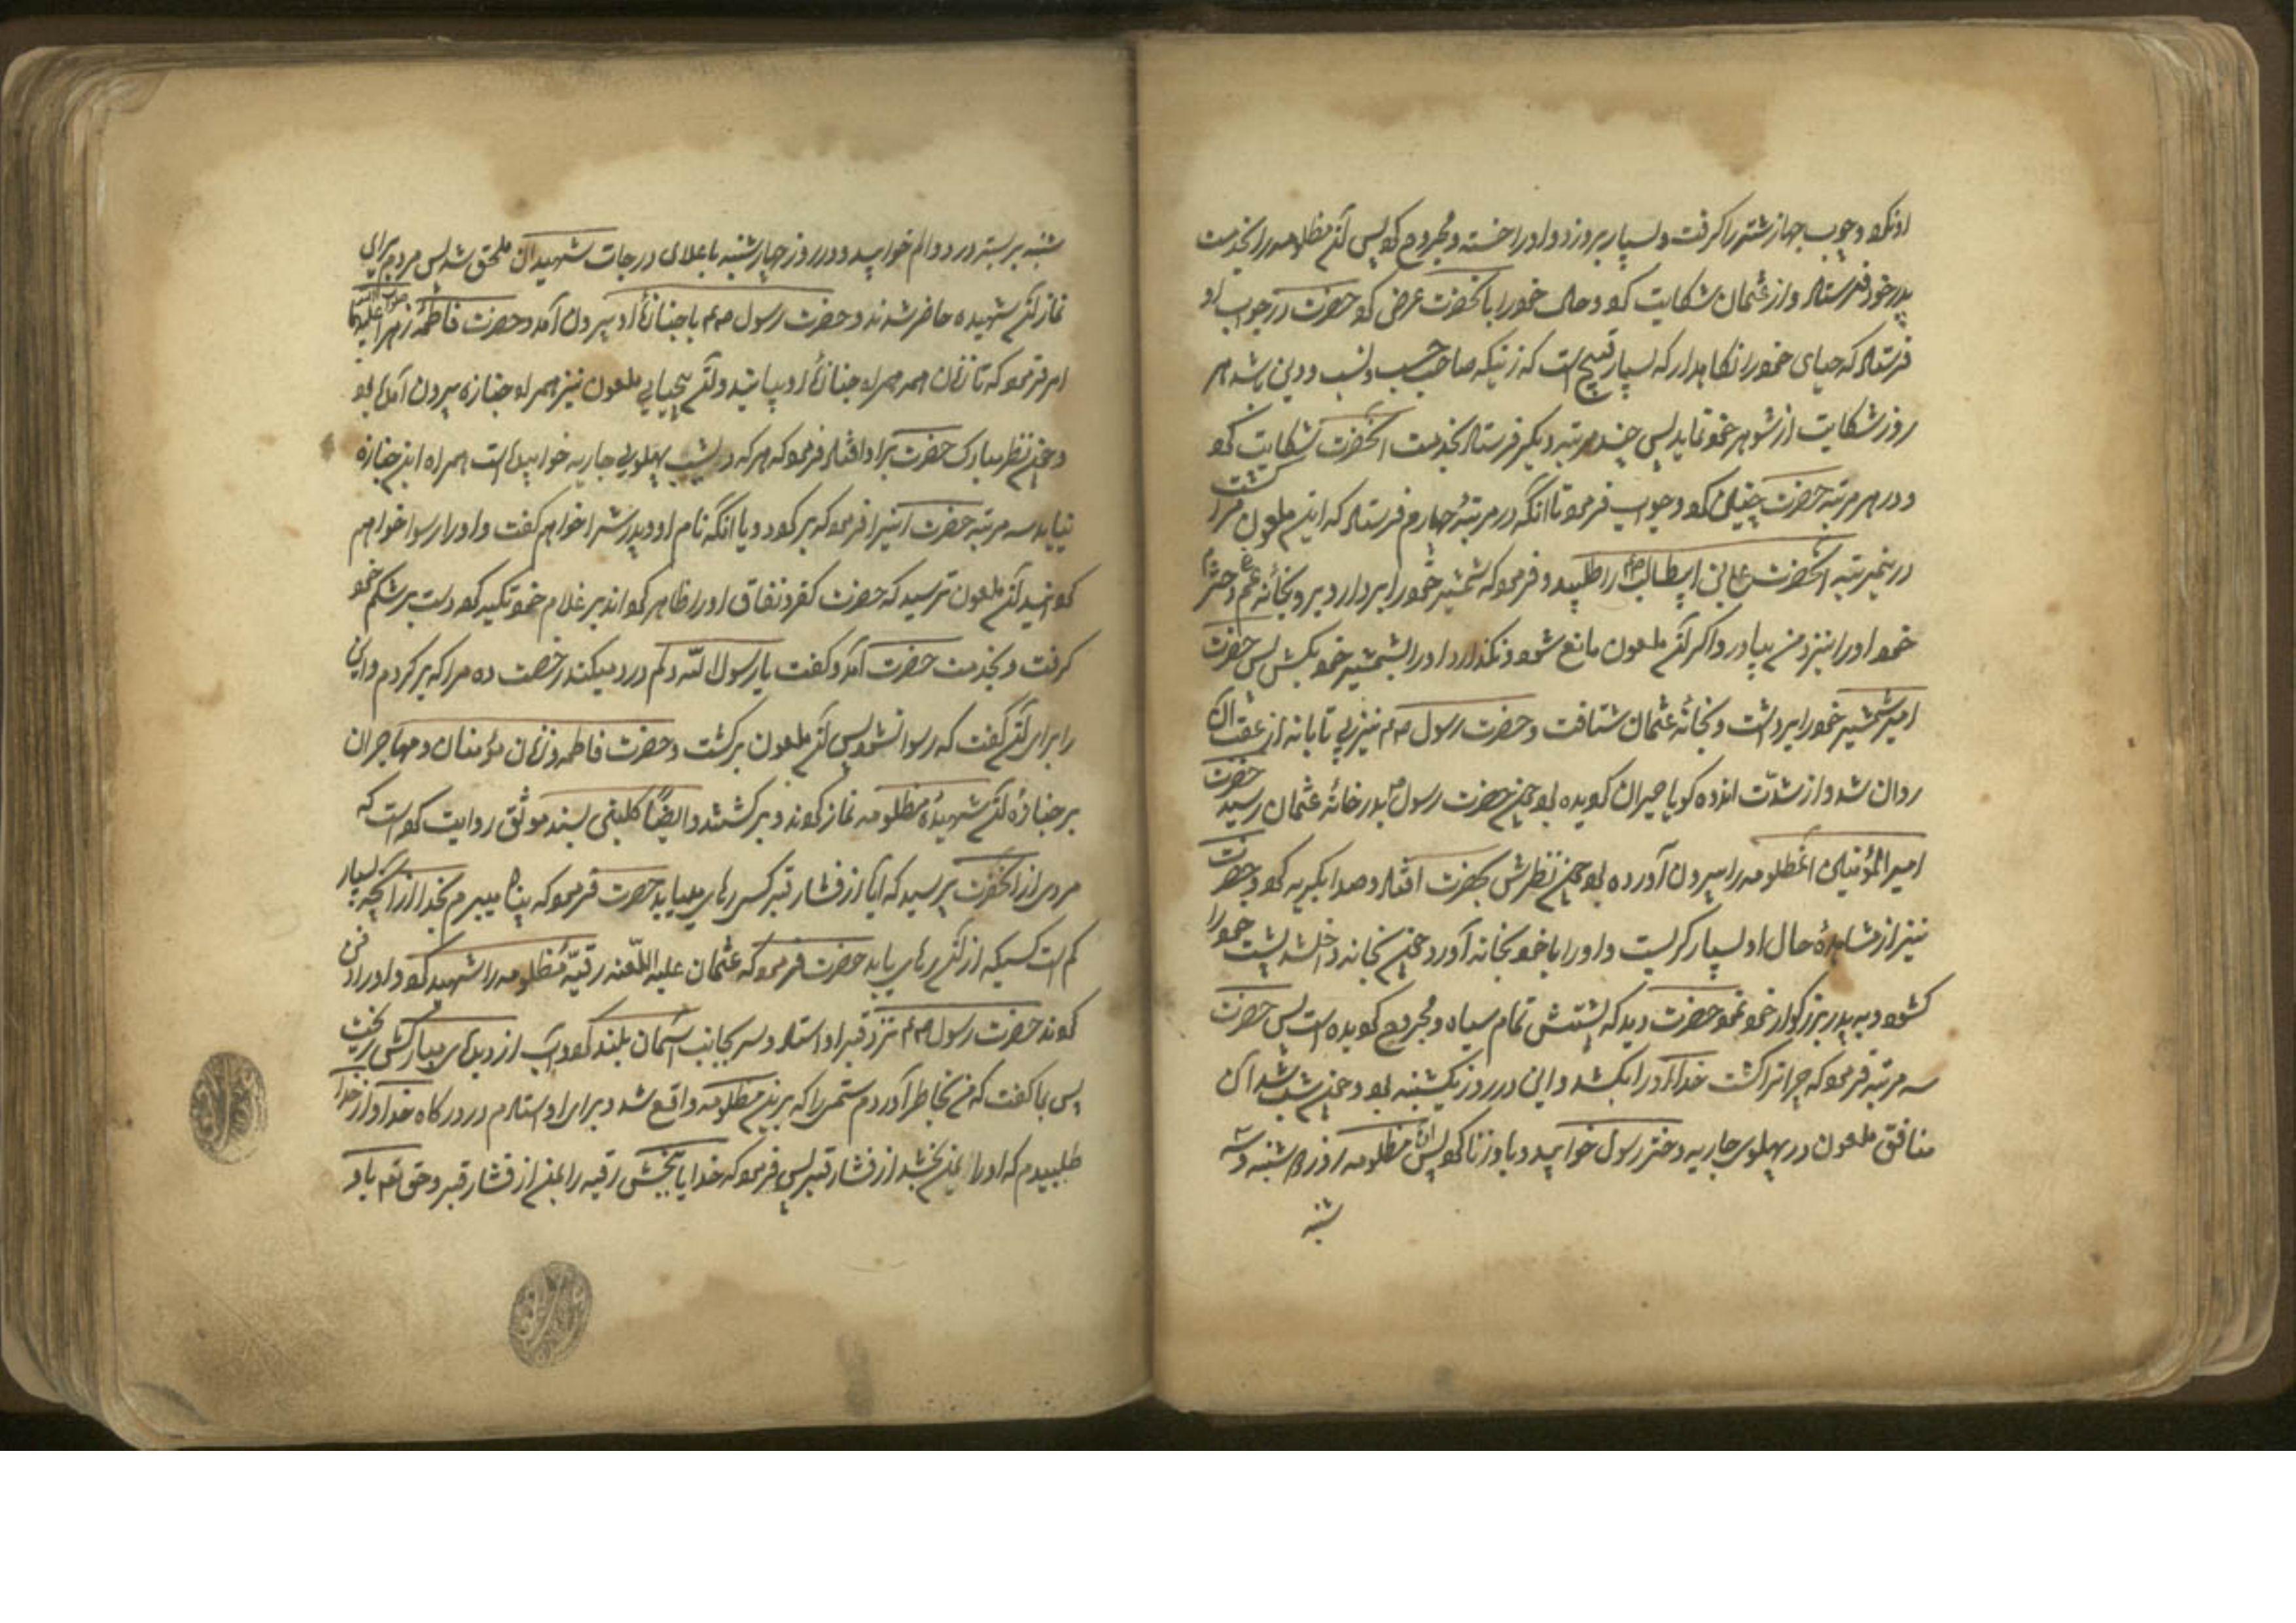 او نکرد و چوب جهاز شتر را گرفت و بسیار بر او زد و او را خسته و مجروح کرد پس آن مظلومه را بخدمت
پدر خود فرستاد و از عثمان شکایت کرد و حال خود را بآنحضرت عرض کرد حضرت در جواب او
فرستاد که حیای خود را نگاهدار که بسیار قبیح است که زنیکه صاحب حسب و نسب و دین باشد هر
روز شکایت از شوهر خود نماید پس چند مرتبه دیگر فرستاد بخدمت آنحضرت شکایت کرد
و در هر مرتبه حضرت چنین جواب فرمود تا آنکه در مرتبه چهارم فرستاد که این ملعون مرا کشت
در این مرتبه آنحضرت علی بن ابیطالب را طلبید و فرمود که شمشیر خود را بردار و برو بخانه عم و دختر
خود او را نزد من بیاور و اگر آن ملعون مانع شود و نگذارد او را بشمشیر خود بکش پس حضرت
امیر شمشیر خود را برداشت و بخانه عثمان شتافت و حضرت رسول نیز بی تابانه از عقب آن
حضرت روان شد و از شدّت اندوه گویا حیران گردیده بود چون حضرت رسول بدر خانه عثمان رسید
امیر المؤمنین آن مظلومه را بیرون آورده بود چون نظرش بحضرت افتاد و صدا بگریه بلند کرد و حضرت
نیز از مشاهده حال او بسیار گریست و او را با خود بخانه آورد چون بخانه داخل شد پشت خود را
گشود و به پدر بزرگوار خود نمود حضرت دید که پشتش تمام سیاه و مجروح گردیده است پس حضرت
سه مرتبه فرمود که چرا ترا کشت خدا او را بکشد و این در روز یکشنبه بود و چون شب شد آن
منافق ملعون در پهلوی جاریه دختر رسول خوابید و با او زنا کرد پس آن مظلومه روز دوشنبه و سه
شنبه
شنبه بر بستر درد و الم خوابید و در روز چهارشنبه باعلای درجات شهیدان ملحق شد پس مردم برای
نماز آن شهیده حاضر شدند و حضرت رسول با جنازه او بیرون آمد و حضرت فاطمه زهرا صلوات الله علیها
امر فرمود که تا زنان همه همراه جنازه او بیایند و آن بیحیای ملعون نیز همراه جنازه بیرون آمده بود
و چون نظر مبارک حضرت بر او افتاد فرمود که هر که دیشب پهلوی جاریه خوابیده است همراه این جنازه
نیاید سه مرتبه حضرت این را فرمود که برگردد و یا آنکه نام او و پدرش را خواهم گفت و او را رسوا خواهم
گردانید آن ملعون ترسید که حضرت کفر و نفاق او را ظاهر گرداند بر غلام خود تکیه کرد و دست بر شکم خود
گرفت و بخدمت حضرت آمد و گفت یا رسول الله دلم درد میکند رخصت ده مرا که برگردم و این
را برای آن گفت که رسوا نشود پس آن ملعون برگشت و حضرت فاطمه و زنان مؤمنان و مهاجران
بر جنازه آن شهیده مظلومه نماز کردند و برگشتند و ایضًا کلینی بسند موثّق روایت کرده است که
مردی از آنحضرت پرسید که آیا از فشار قبر کسی رهایی مییابد حضرت فرمود که پناه میبرم بخدا از آن چه بسیار
کم است کسیکه از آن رهایی یابد حضرت فرمود که عثمان علیه اللّعنه رقیّه مظلومه را شهید کرد و او را دفن
کردند حضرت رسول نزد قبر او ایستاد و سر بجانب آسمان بلند کرد و آب از دیده‌ای مبارکش ریخت
پس با گفت که من بخاطر آوردم ستمی را که بر این مظلومه واقع شد و برای او ایستادم در درگاه خدا و از خدا
طلبیدم که او را بمن بخشد از فشار قبر پس فرمود که خدایا ببخش رقیه را بمن از فشار قبر و حق تعالی باو